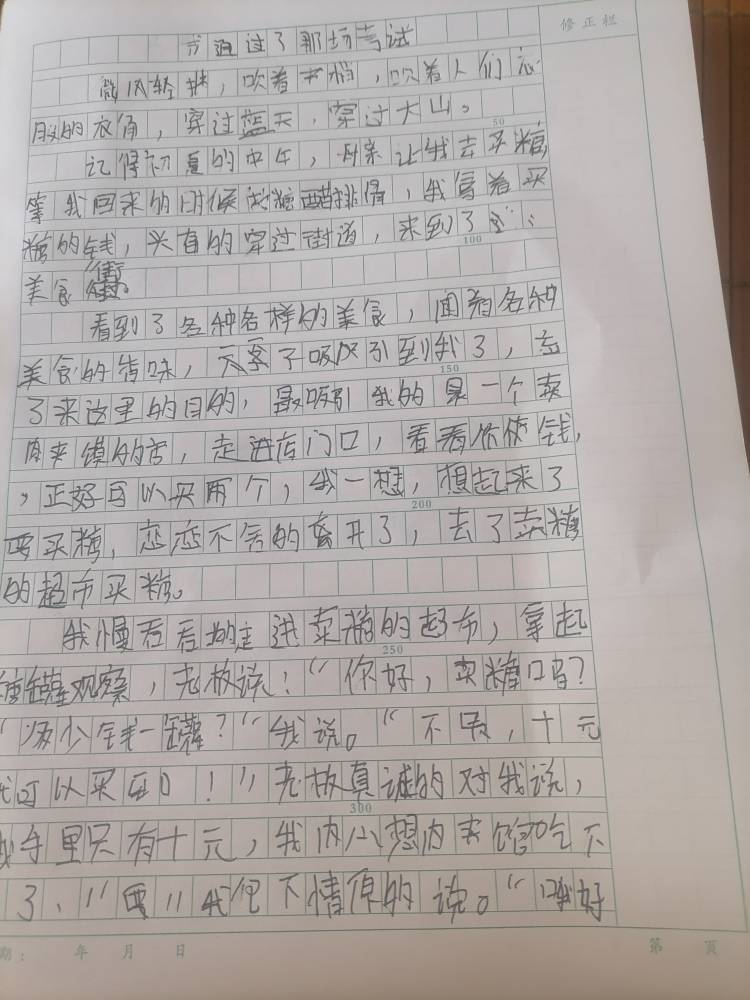 通过了那场考试
微风轻拂，吹着书梢，吹着人们衣
服的衣角，穿过蓝天，穿过大山。
50
记得初夏的中午，母亲让我去买糖，
等我回来的时候做糖醋排骨，我拿着买
糖的钱，兴奋的穿过街道，来到了
100
美食街。
看到了各种各样的美食，闻着各种
美食的香味，吸引到我了，忘
150
了来这里的目的，最吸引我的是一个卖
肉夹馍的店，走进店门口，看看价钱，
，正好可以买两个，我一想，想起来了
200
要买糖，恋恋不舍的离开了，去了卖糖
的超市买糖。
我慢吞吞地走进卖糖的超市，拿起
250
糖罐观察，老板说：“你好，买糖吗？
“多少钱一罐？“我说。“不贵，十元
就可以买到！”老板真诚的对我说，
300
我手里只有十元，我内心想肉夹馍吃不
了，“要”我很不情愿的说。“哦好
期： 年 月 日
第 页
修正栏